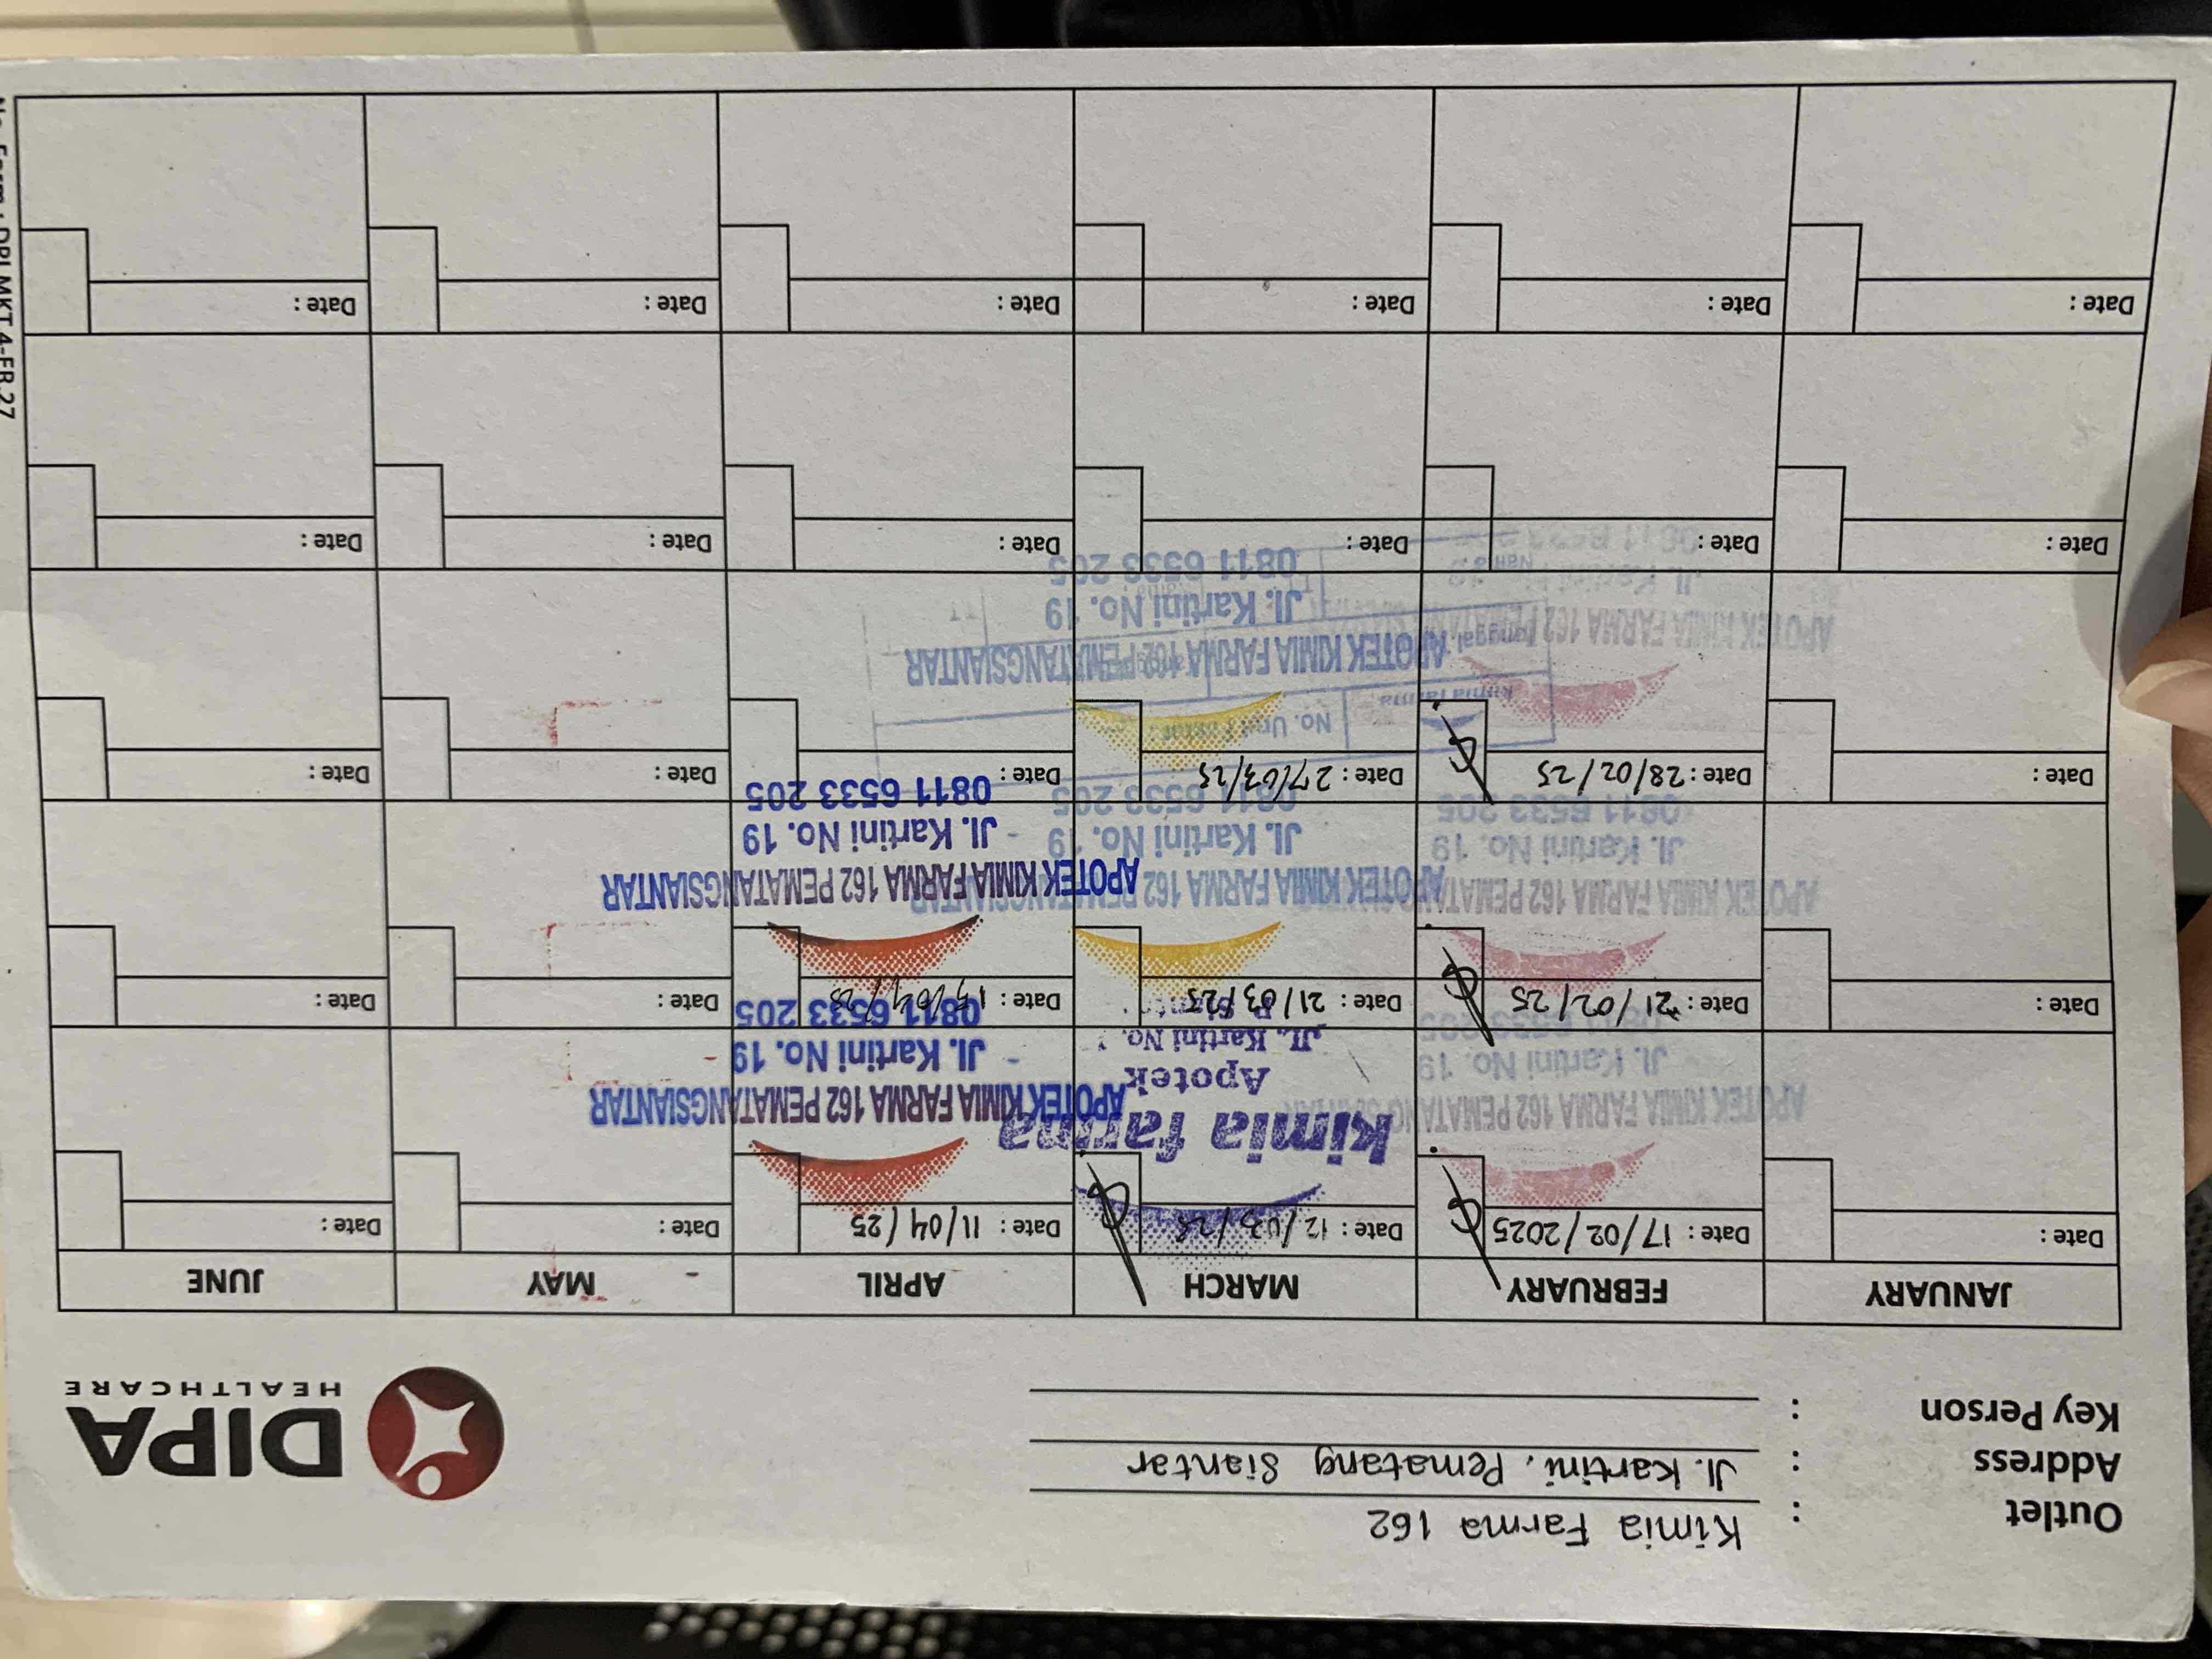 Outlet : Kimia Farma 162
Address : Jl. Kartini, Pematang Siantar
Key Person :
DIPA
HEALTHCARE
JANUARY FEBRUARY MARCH APRIL MAY JUNE
Date : Date : 17/02/2025 Date : 12/03/25 Date : 11/04/25 Date : Date :
kimia farma
APOTEK KIMIA FARMA 162 PEMATANGSIANTAR Apotek APOTEK KIMIA FARMA 162 PEMATANGSIANTAR
Jl. Kartini No. 19 Jl. Kartini No. Jl. Kartini No. 19
0811 6533 205 0811 6533 205
Date : Date : 21/02/25 Date : 21/03/25 Date : Date : Date :
APOTEK KIMIA FARMA 162 APOTEK KIMIA FARMA 162 APOTEK KIMIA FARMA 162 PEMATANGSIANTAR
Jl. Kartini No. 19 Jl. Kartini No. 19 Jl. Kartini No. 19
0811 6533 205 0811 6533 205 0811 6533 205
Date : Date : 28/02/25 Date : 27/03/25 Date : Date : Date :
No. Urut
kimia farma
Tanggal
APOTEK KIMIA FARMA 162 APOTEK KIMIA FARMA 162 PEMATANGSIANTAR
Jl. Kartini Jl. Kartini No. 19
Nama
0811 6533 0811 6533 205
Date : Date : Date : Date : Date : Date :
Date : Date : Date : Date : Date : Date :
DPLMKT.4-FR.27